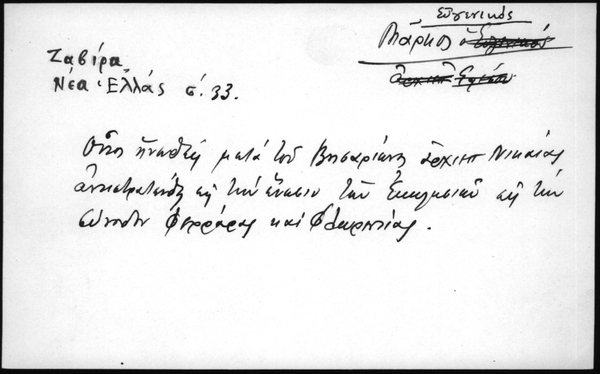 Εὐγενικὸς
Μᾶρκος ὁ Εὐγενικός
ἀρχιεπ. Ἐφέσου
Ζαβίρα
Νέα Ἑλλάς σ. 33.
Οὗτος μετὰ τοῦ Βησσαρίωνος ἀρχιεπ Νικαίας
εἰς τὴν ἕνωσιν τῶν Ἐκκλησιῶν εἰς τὴν
σύνοδον Φερράρας καὶ Φλωρεντίας.